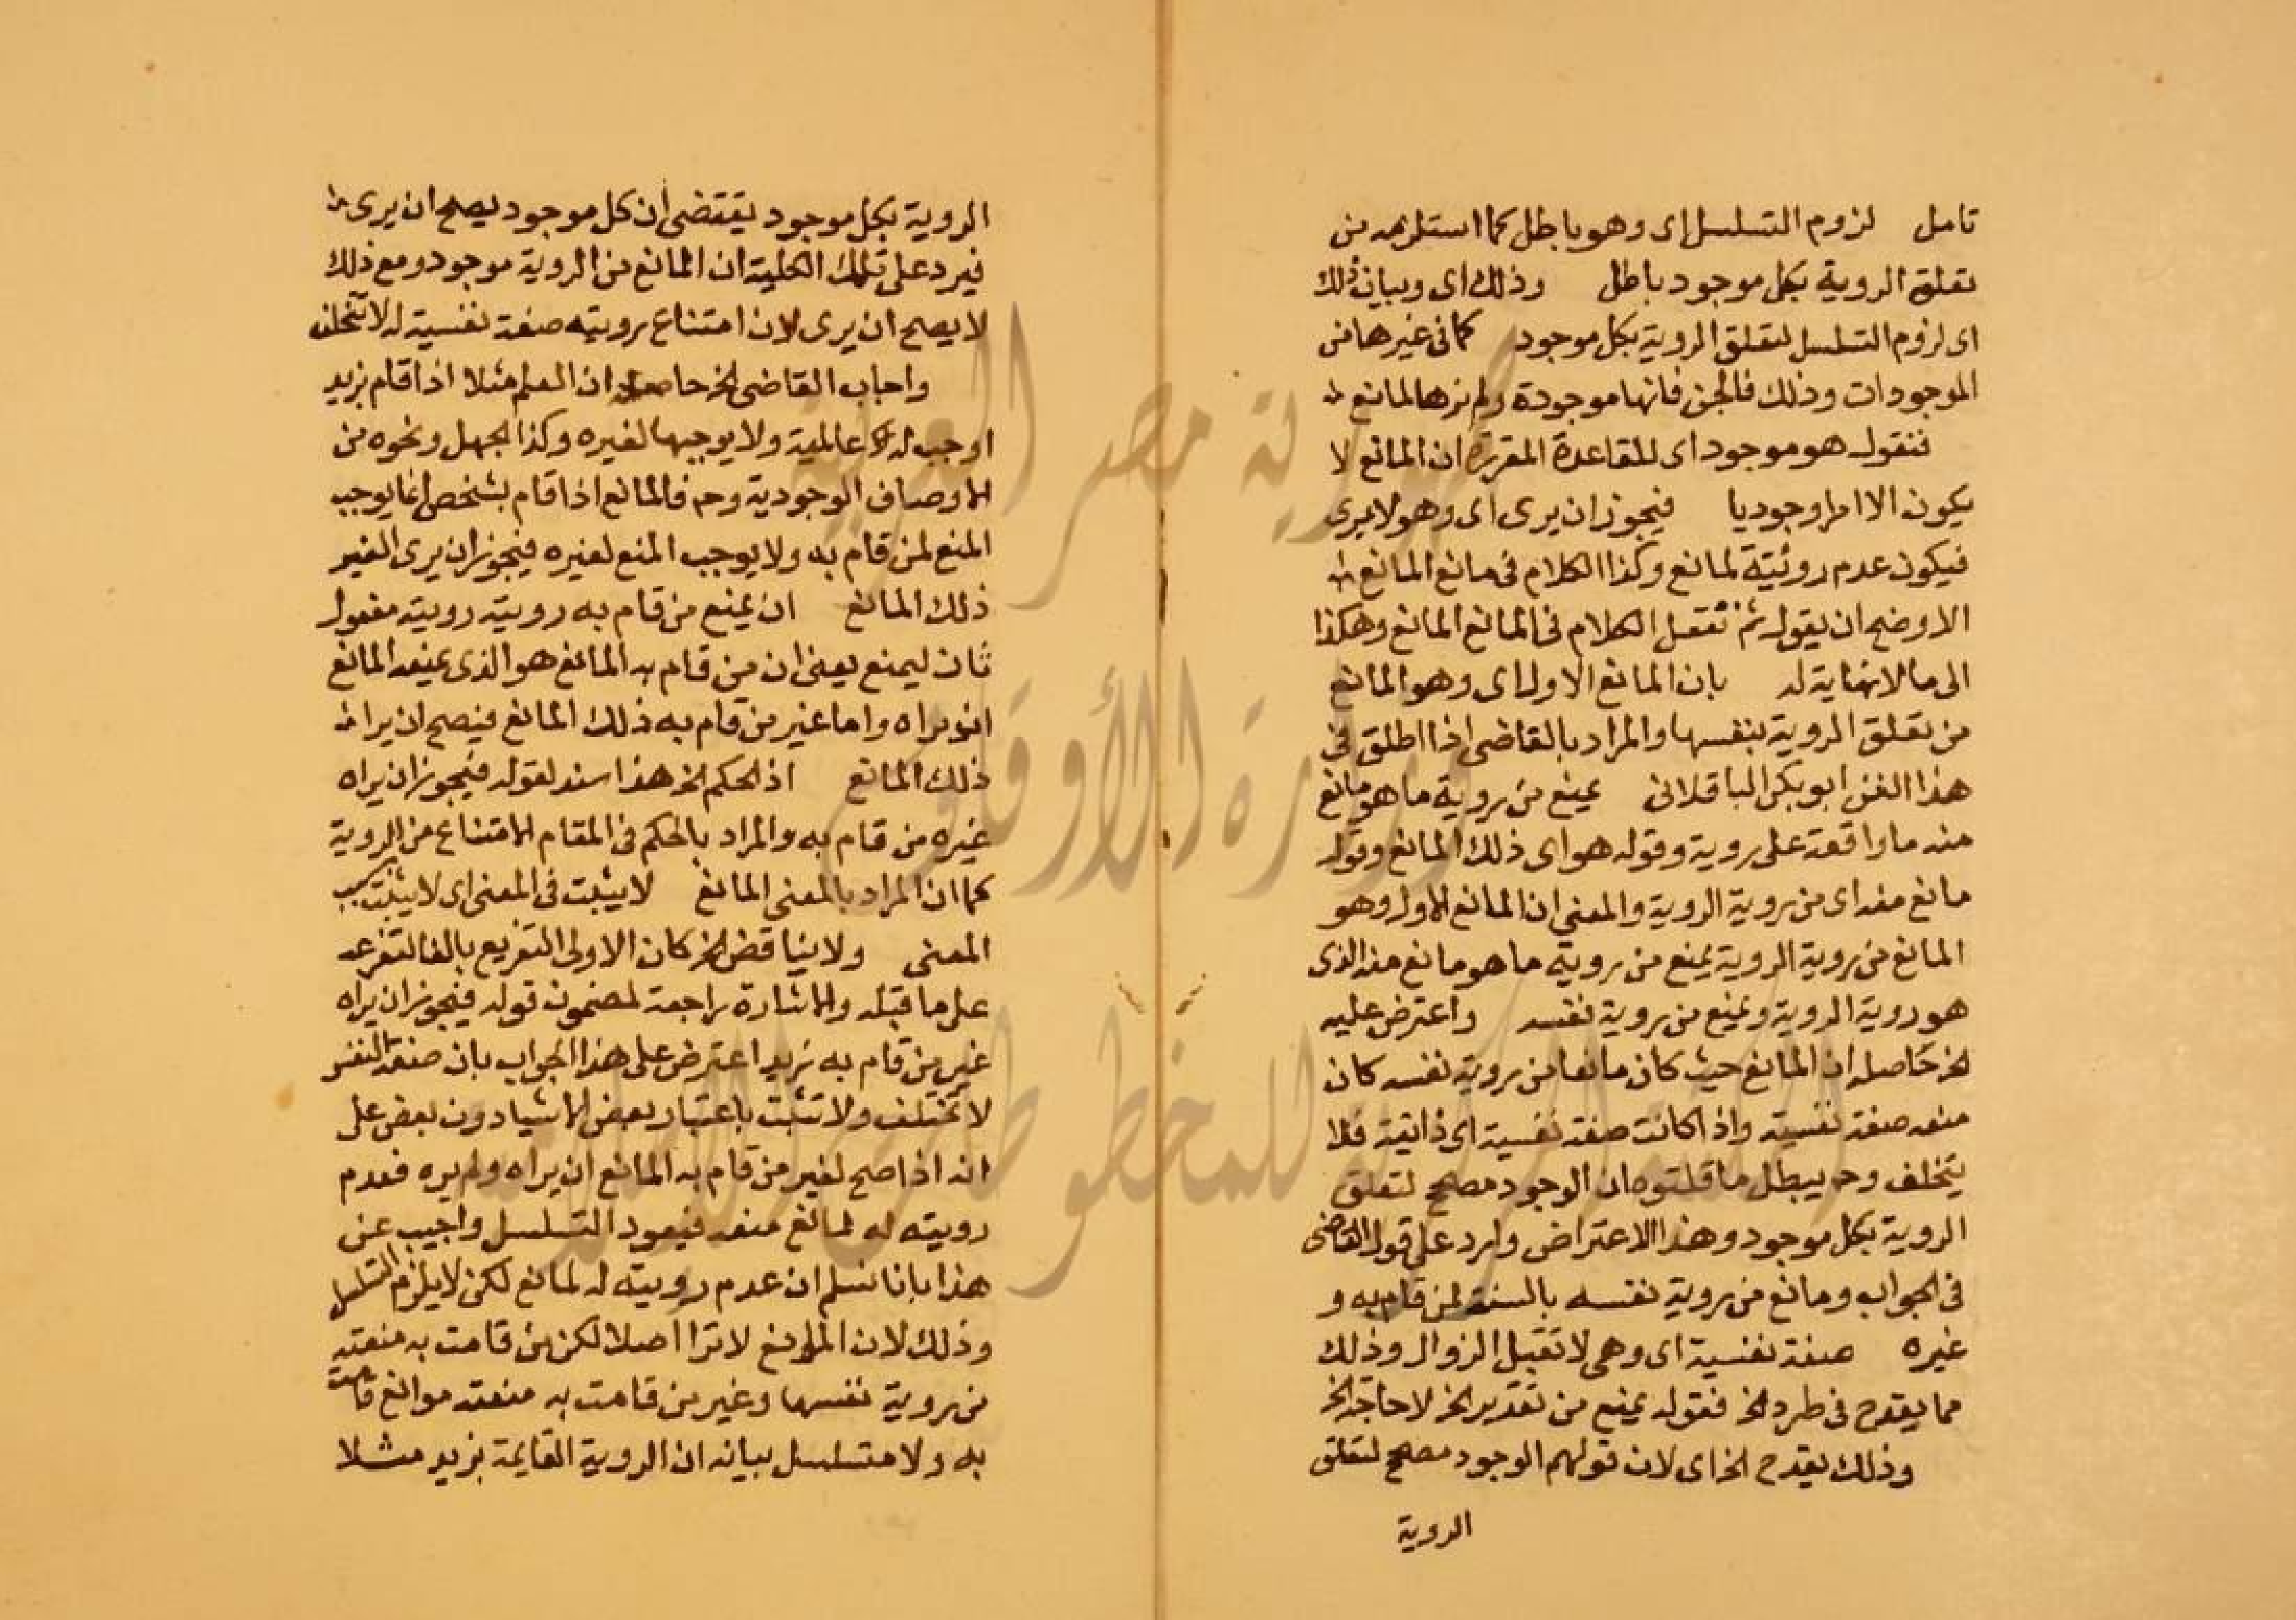 تامل لزوم التسلسل اى وهو باطل كما استلزمه من
تعلق الروية بكل موجود باطل وذلك اى وبيان ذلك
اى لزوم التسلسل لتعلق الروية بكل موجود كما فى غيرها من
الموجودات وذلك فالجن فانها موجودة ولم نرها لمانع
فنقول هو موجود اى للقاعدة المقررة ان المانع لا
يكون الا امرا وجوديا فيجوز ان يرى اى وهو لا يرى
فيكون عدم روئيته لمانع وكذا الكلام فى مانع المانع
الاوضح ان يقول ثم ننقل الكلام فى المانع المانع وهكذا
الى ما لا نهاية له بان المانع الاول اى وهو المانع
من تعلق الروية بنفسها والمراد بالقاضى اذا اطلق فى
هذا الفن ابو بكر الباقلانى يمنع من روية ما هو مانع
منه ما واقعة على روية وقوله هو اى ذلك المانع وقوله
مانع منه اى من روية الروية والمعنى ان المانع الاول وهو
المانع من روية الروية يمنع من روية ما هو مانع منه الذى
هو روية الروية ويمنع من روية نفسه واعترض عليه
الخ حاصله ان المانع حيث كان مانعا من روية نفسه كان
منعه صفة نفسية واذا كانت صفة نفسية اى ذاتية فلا
يتخلف وح يبطل ما قلتوه ان الوجود مصحح لتعلق
الروية بكل موجود وهذا الاعتراض وارد على قول القاضى
فى الجواب ومانع من روية نفسه بالنسبة لمن قام به و
غيره صفة نفسية اى وهى لا تقبل الزوال وذلك
مما يقدح فى طرد الخ فقوله يمنع من تقدير الخ لا حاجة الخ
وذلك يقدح الخ اى لان قولهم الوجود مصحح لتعلق
الروية
الروية بكل موجود يقتضى ان كل موجود يصح ان يرى
فيرد على تلك الكلية ان المانع من الروية موجود ومع ذلك
لا يصح ان يرى لان امتناع رويته صفة نفسية له لا تتخلف
واجاب القاضى الخ حاصله ان العلم مثلا اذا قام بزيد
اوجب له عالمية ولا يوجبها لغيره وكذا الجهل ونحوه من
الاوصاف الوجودية وح فالمانع اذا قام بشخص انما يوجب
المنع لمن قام به ولا يوجب المنع لغيره فيجوز ان يرى الغير
ذلك المانع ان يمنع من قام به رويته رويته مفعول
ثان ليمنع يعنى ان من قام به المانع هو الذى يمنعه المانع
ان يراه واما غير من قام به ذلك المانع فيصح ان يرا
ذلك المانع اذ الحكم الخ هذا سند لقوله فيجوز ان يراه
غيره من قام به والمراد بالحكم فى المقام الامتناع من الروية
كما ان المراد بالمعنى المانع لا يثبت فى المعنى اى لا يثبت بسبب
المعنى ولا يناقض الخ كان الاولى التفريع بالفا لتفرعه
على ما قبله والاشارة راجعة لمضمون قوله فيجوز ان يراه
غير من قام به نريد اعترض على هذا الجواب بان صفة النفس
لا تختلف ولا تثبت باعتبار بعض الاشيا دون بعض على
انه اذا صح لغير من قام به المانع ان يراه ولم يره فعدم
رويته له لمانع منعه فيعود التسلسل واجيب عن
هذا بانا نسلم ان عدم رويته له لمانع لكن لا يلزم التسلسل
وذلك لان الموانع لا ترا اصلا لكن من قامت به منعته
من روية نفسها وغير من قامت به منعته موانع قامت
به ولا متسلسل بيانه ان الروية القايمة بزيد مثلا